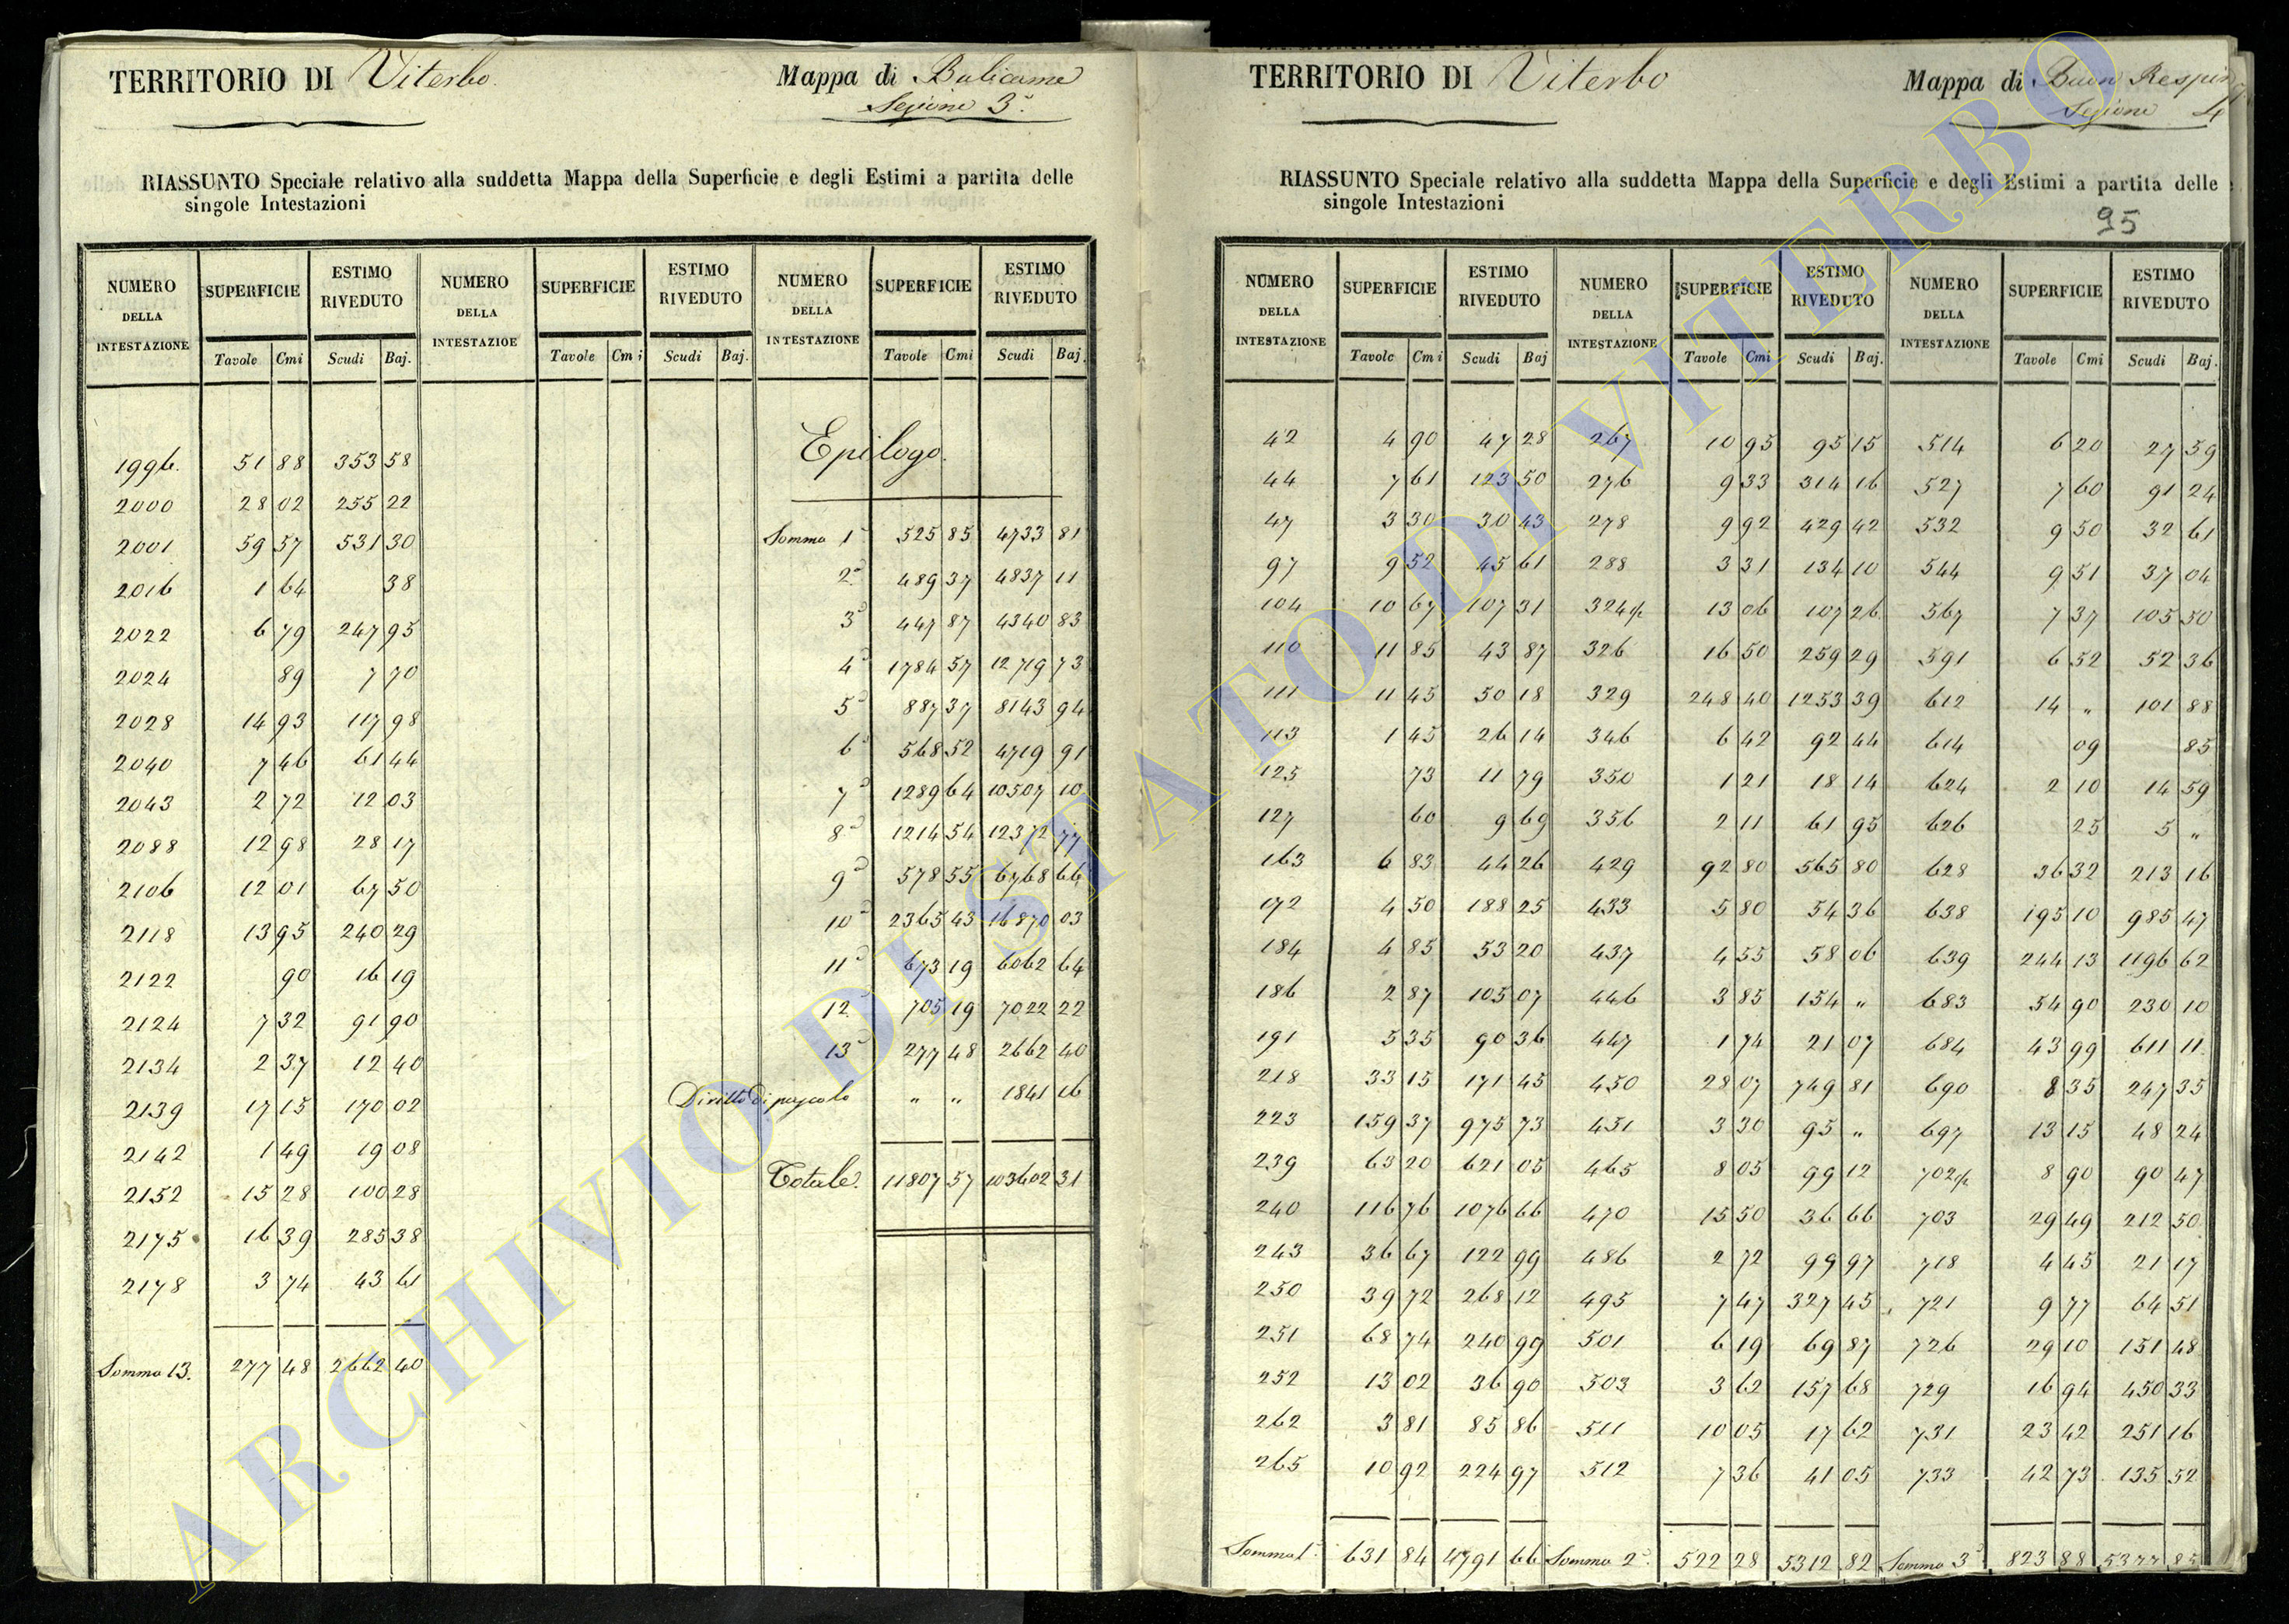 TERRITORIO DI Viterbo.
Mappa di Bulicame
Sezione 3ª.
RIASSUNTO Speciale relativo alla suddetta Mappa della Superficie e degli Estimi a partita delle
singole Intestazioni
NUMERO DELLA INTESTAZIONE SUPERFICIE ESTIMO RIVEDUTO NUMERO DELLA INTESTAZIOE SUPERFICIE ESTIMO RIVEDUTO NUMERO DELLA INTESTAZIONE SUPERFICIE ESTIMO RIVEDUTO
Tavole Cmi Scudi Baj. Tavole Cmi Scudi Baj. Tavole Cmi Scudi Baj.
1996. 51 88 353 58
2000 28 02 255 22
2001 59 57 531 30
2016 1 64 38
2022 6 79 247 95
2024 89 7 70
2028 14 93 117 98
2040 7 46 61 44
2043 2 72 12 03
2088 12 98 28 17
2106 12 01 67 50
2118 13 95 240 29
2122 90 16 19
2124 7 32 91 90
2134 2 37 12 40
2139 17 15 170 02
2142 1 49 19 08
2152 15 28 100 28
2175 16 39 285 38
2178 3 74 43 61
Somma 13. 277 48 2662 40
Epilogo.
Somma 1ª 525 85 4733 81
2ª 489 37 4837 11
3ª 447 87 4340 83
4ª 1784 57 12719 73
5ª 887 37 8143 94
6ª 568 52 4719 91
7ª 1289 64 10507 10
8ª 1214 54 12372 77
9ª 578 55 6768 66
10ª 2365 43 16870 03
11ª 673 19 6062 64
12ª 705 19 7022 22
13ª 277 48 2662 40
Diritto di pascolo " " 1841 16
Totale. 11807 57 103602 31
TERRITORIO DI Viterbo
Mappa di Buon Respiro
Sezione 4
RIASSUNTO Speciale relativo alla suddetta Mappa della Superficie e degli Estimi a partita delle
singole Intestazioni
95
NUMERO DELLA INTESTAZIONE SUPERFICIE ESTIMO RIVEDUTO NUMERO DELLA INTESTAZIONE SUPERFICIE ESTIMO RIVEDUTO NUMERO DELLA INTESTAZIONE SUPERFICIE ESTIMO RIVEDUTO
Tavole Cmi Scudi Baj Tavole Cmi Scudi Baj. Tavole Cmi Scudi Baj.
42 4 90 47 28 267 10 95 95 15 514 6 20 27 59
44 7 61 123 50 276 9 33 314 16 527 7 60 91 24
47 3 30 30 43 278 9 92 429 42 532 9 50 32 61
97 9 52 45 61 288 3 31 134 10 544 9 51 37 04
104 10 67 107 31 324 13 06 107 26 567 7 37 105 50
110 11 85 43 87 326 16 50 259 29 591 6 52 52 36
111 11 45 50 18 329 248 40 1253 39 612 14 " 101 88
113 1 45 26 14 346 6 42 92 44 614 09 85
125 73 11 79 350 1 21 18 14 624 2 10 14 59
127 60 9 69 356 2 11 61 95 626 25 5 "
163 6 83 44 26 429 92 80 565 80 628 36 32 213 16
172 4 50 188 25 433 5 80 54 36 638 195 10 985 47
184 4 85 53 20 437 4 55 58 06 639 244 13 1196 62
186 2 87 105 07 446 3 85 154 " 683 54 90 230 10
191 5 35 90 36 447 1 74 21 07 684 43 99 611 11
218 33 15 171 45 450 28 07 749 81 690 8 35 247 35
223 159 37 975 73 451 3 30 95 " 697 13 15 48 24
239 63 20 621 05 465 8 05 99 12 702 8 90 90 47
240 116 76 1076 66 470 15 50 36 66 703 29 49 212 50
243 36 67 122 99 486 2 72 99 97 718 4 45 21 17
250 39 72 268 12 495 7 47 327 45 721 9 77 64 51
251 68 74 240 99 501 6 19 69 87 726 29 10 151 48
252 13 02 36 90 503 3 62 157 68 729 16 94 450 33
262 3 81 85 86 511 10 05 17 62 731 23 42 251 16
265 10 92 224 97 512 7 36 41 05 733 42 73 135 52
Somma 1ª 631 84 4791 66 Somma 2ª 522 28 5312 82 Somma 3ª 823 88 5377 85
ARCHIVIO DI STATO DI VITERBO